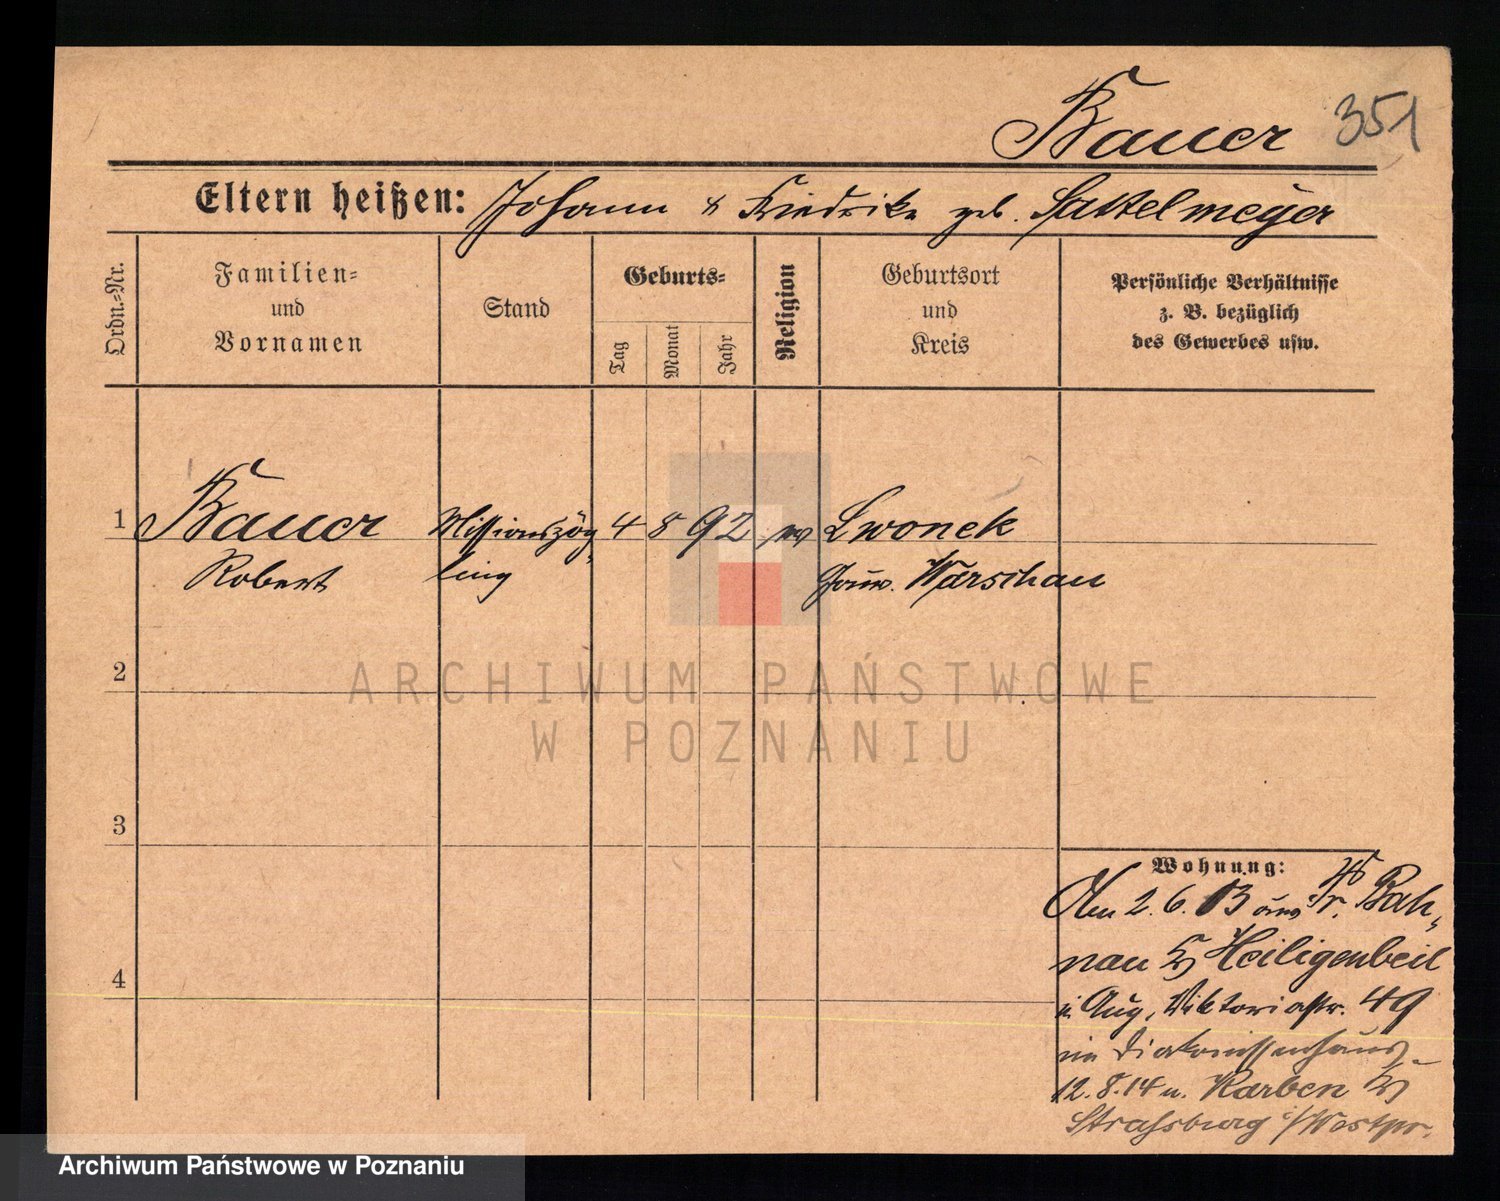 Bauer 351
Eltern heißen: Johann & Friedrike geb. Sattelmeyer
Ordn.-Nr.
Familien-
und
Vornamen
Stand
Geburts-
Tag
Monat
Jahr
Religion
Geburtsort
und
Kreis
Persönliche Verhältnisse
z. B. bezüglich
des Gewerbes usw.
1 Bauer Missionszög- 4 8 92 ev Lwonek
Robert ling Gouv. Warschau
2
3
4
Wohnung:
2. 6. 13 aus Gr. Bah-
nau Kr Heiligenbeil
i. Aug. Viktoriastr. 49
im Diakonissenhaus
12. 8. 14 n. Karben Kr
Strassburg i/Westpr.
ARCHIWUM PAŃSTWOWE
W POZNANIU
Archiwum Państwowe w Poznaniu